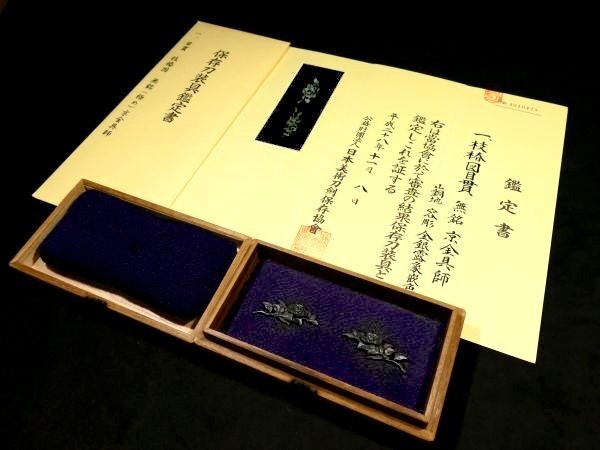 鑑定書
一、枝椿図目貫 無銘 京金具師
山銅地 容彫 金銀露象嵌色絵
右は當協會に於て審査の結果保存刀装具と
鑑定しこれを証する
平成二十八年十一月八日
公益財團法人日本美術刀剣保存協會
保存刀装具鑑定書
一、目貫 枝椿図 無銘
京金具師